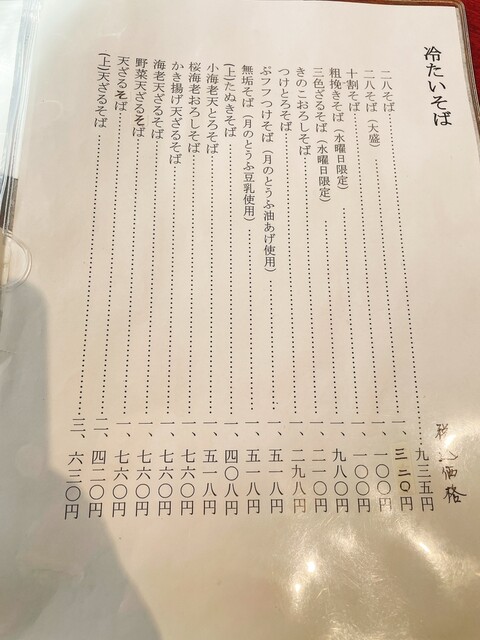 冷たいそば
税込価格
二八そば……九三五円
二八そば(大盛)……一、三二〇円
十割そば……一、一〇〇円
粗挽きそば(水曜日限定)……一、一〇〇円
三色ざるそば(水曜日限定)……一、九八〇円
きのこおろしそば……一、二一〇円
つけとろそば……一、二九八円
ぷフフつけそば(月のとうふ油あげ使用)……一、五一八円
無垢そば(月のとうふ豆乳使用)……一、五一八円
(上)たぬきそば……一、四〇八円
小海老天とろそば……一、五一八円
桜海老おろしそば……一、七六〇円
かき揚げ天ざるそば……一、七六〇円
海老天ざるそば……一、七六〇円
野菜天ざるそば……一、七六〇円
天ざるそば……二、四二〇円
(上)天ざるそば……三、六三〇円